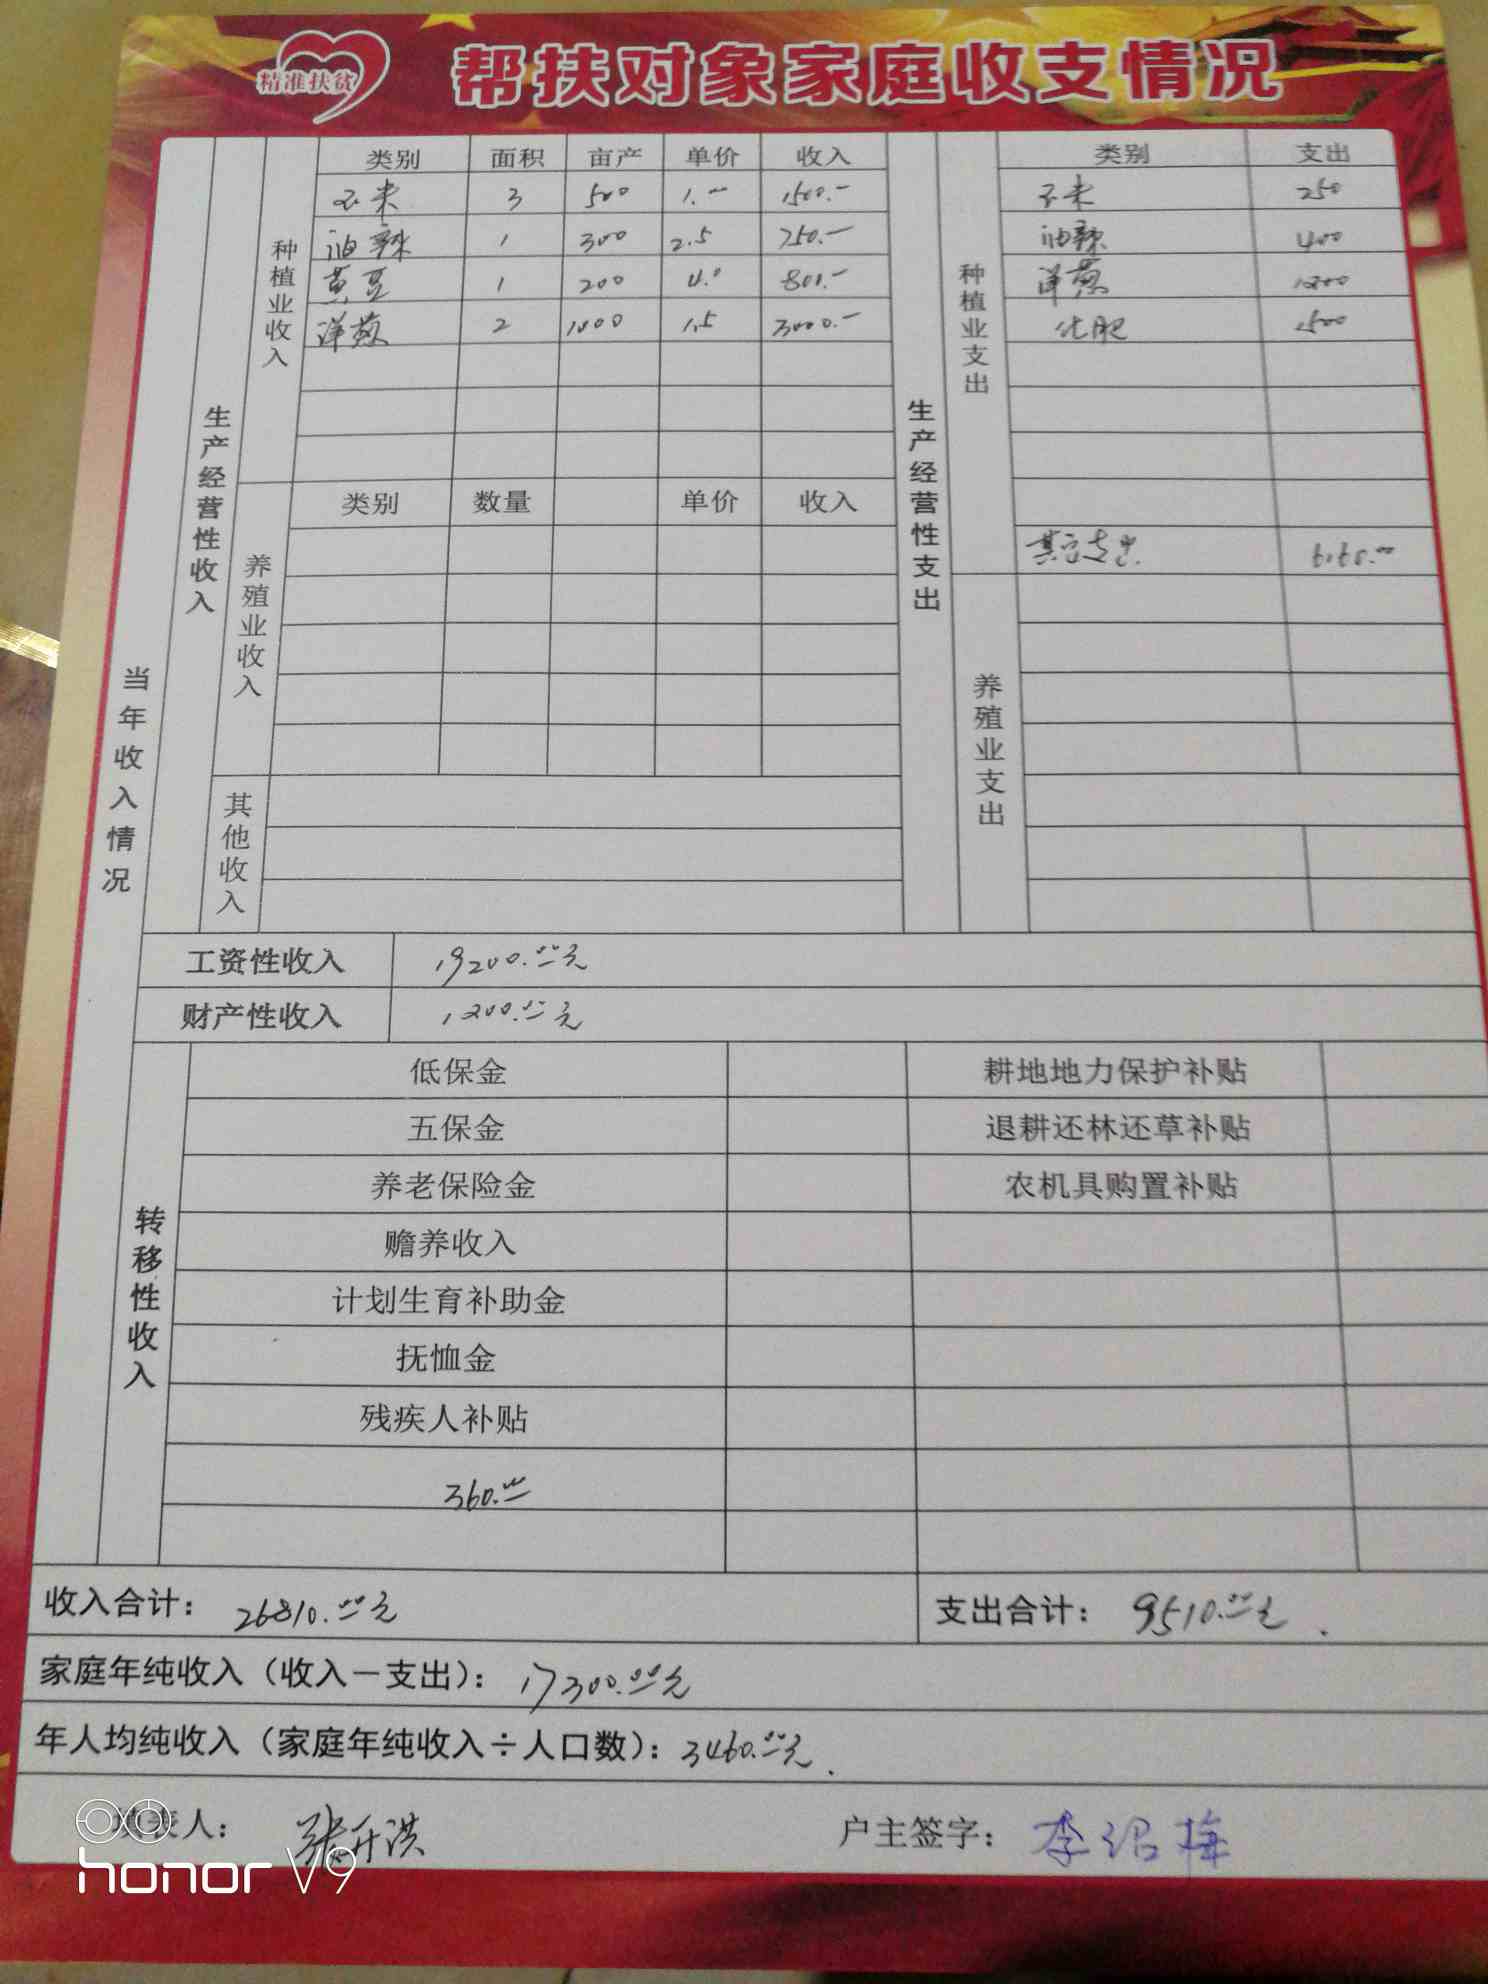 精准扶贫
帮扶对象家庭收支情况
当年收入情况
生产经营性收入
种植业收入
类别 面积 亩产 单价 收入
玉米 3 500 1.00 1500.-
油辣 1 300 2.5 750.-
黄豆 1 200 4.0 800.-
洋葱 2 1000 1.5 3000.-
养殖业收入
类别 数量 单价 收入
其他收入
生产经营性支出
种植业支出
类别 支出
玉米 250
油辣 400
洋葱 1200
化肥 1500
支出
养殖业支出
工资性收入 19200.00元
财产性收入 1200.00元
转移性收入
低保金 耕地地力保护补贴
五保金 退耕还林还草补贴
养老保险金 农机具购置补贴
赡养收入
计划生育补助金
抚恤金
残疾人补贴
360.00
收入合计：26810.00元 支出合计：9510.00元.
家庭年纯收入（收入－支出）：17300.00元
年人均纯收入（家庭年纯收入÷人口数）：3460.00元.
填表人：张开洪 户主签字：李绍梅
honor V9